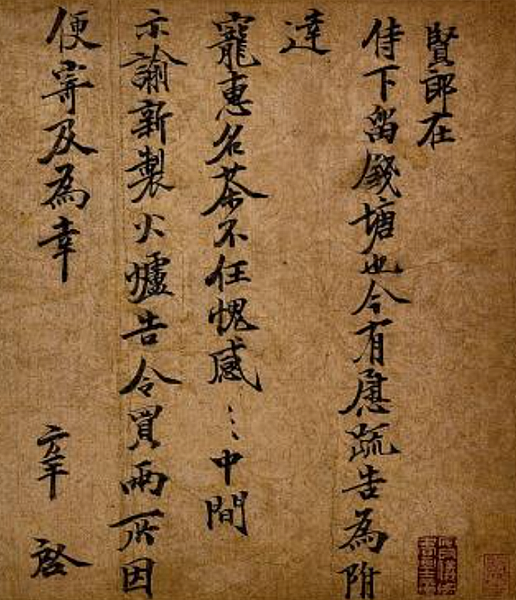 賢郎在
侍下留錢塘也今有慰疏告為附
達
寵惠名茶不任愧感〻中間
示諭新製火爐告令買兩隻因
便寄及為幸
啓